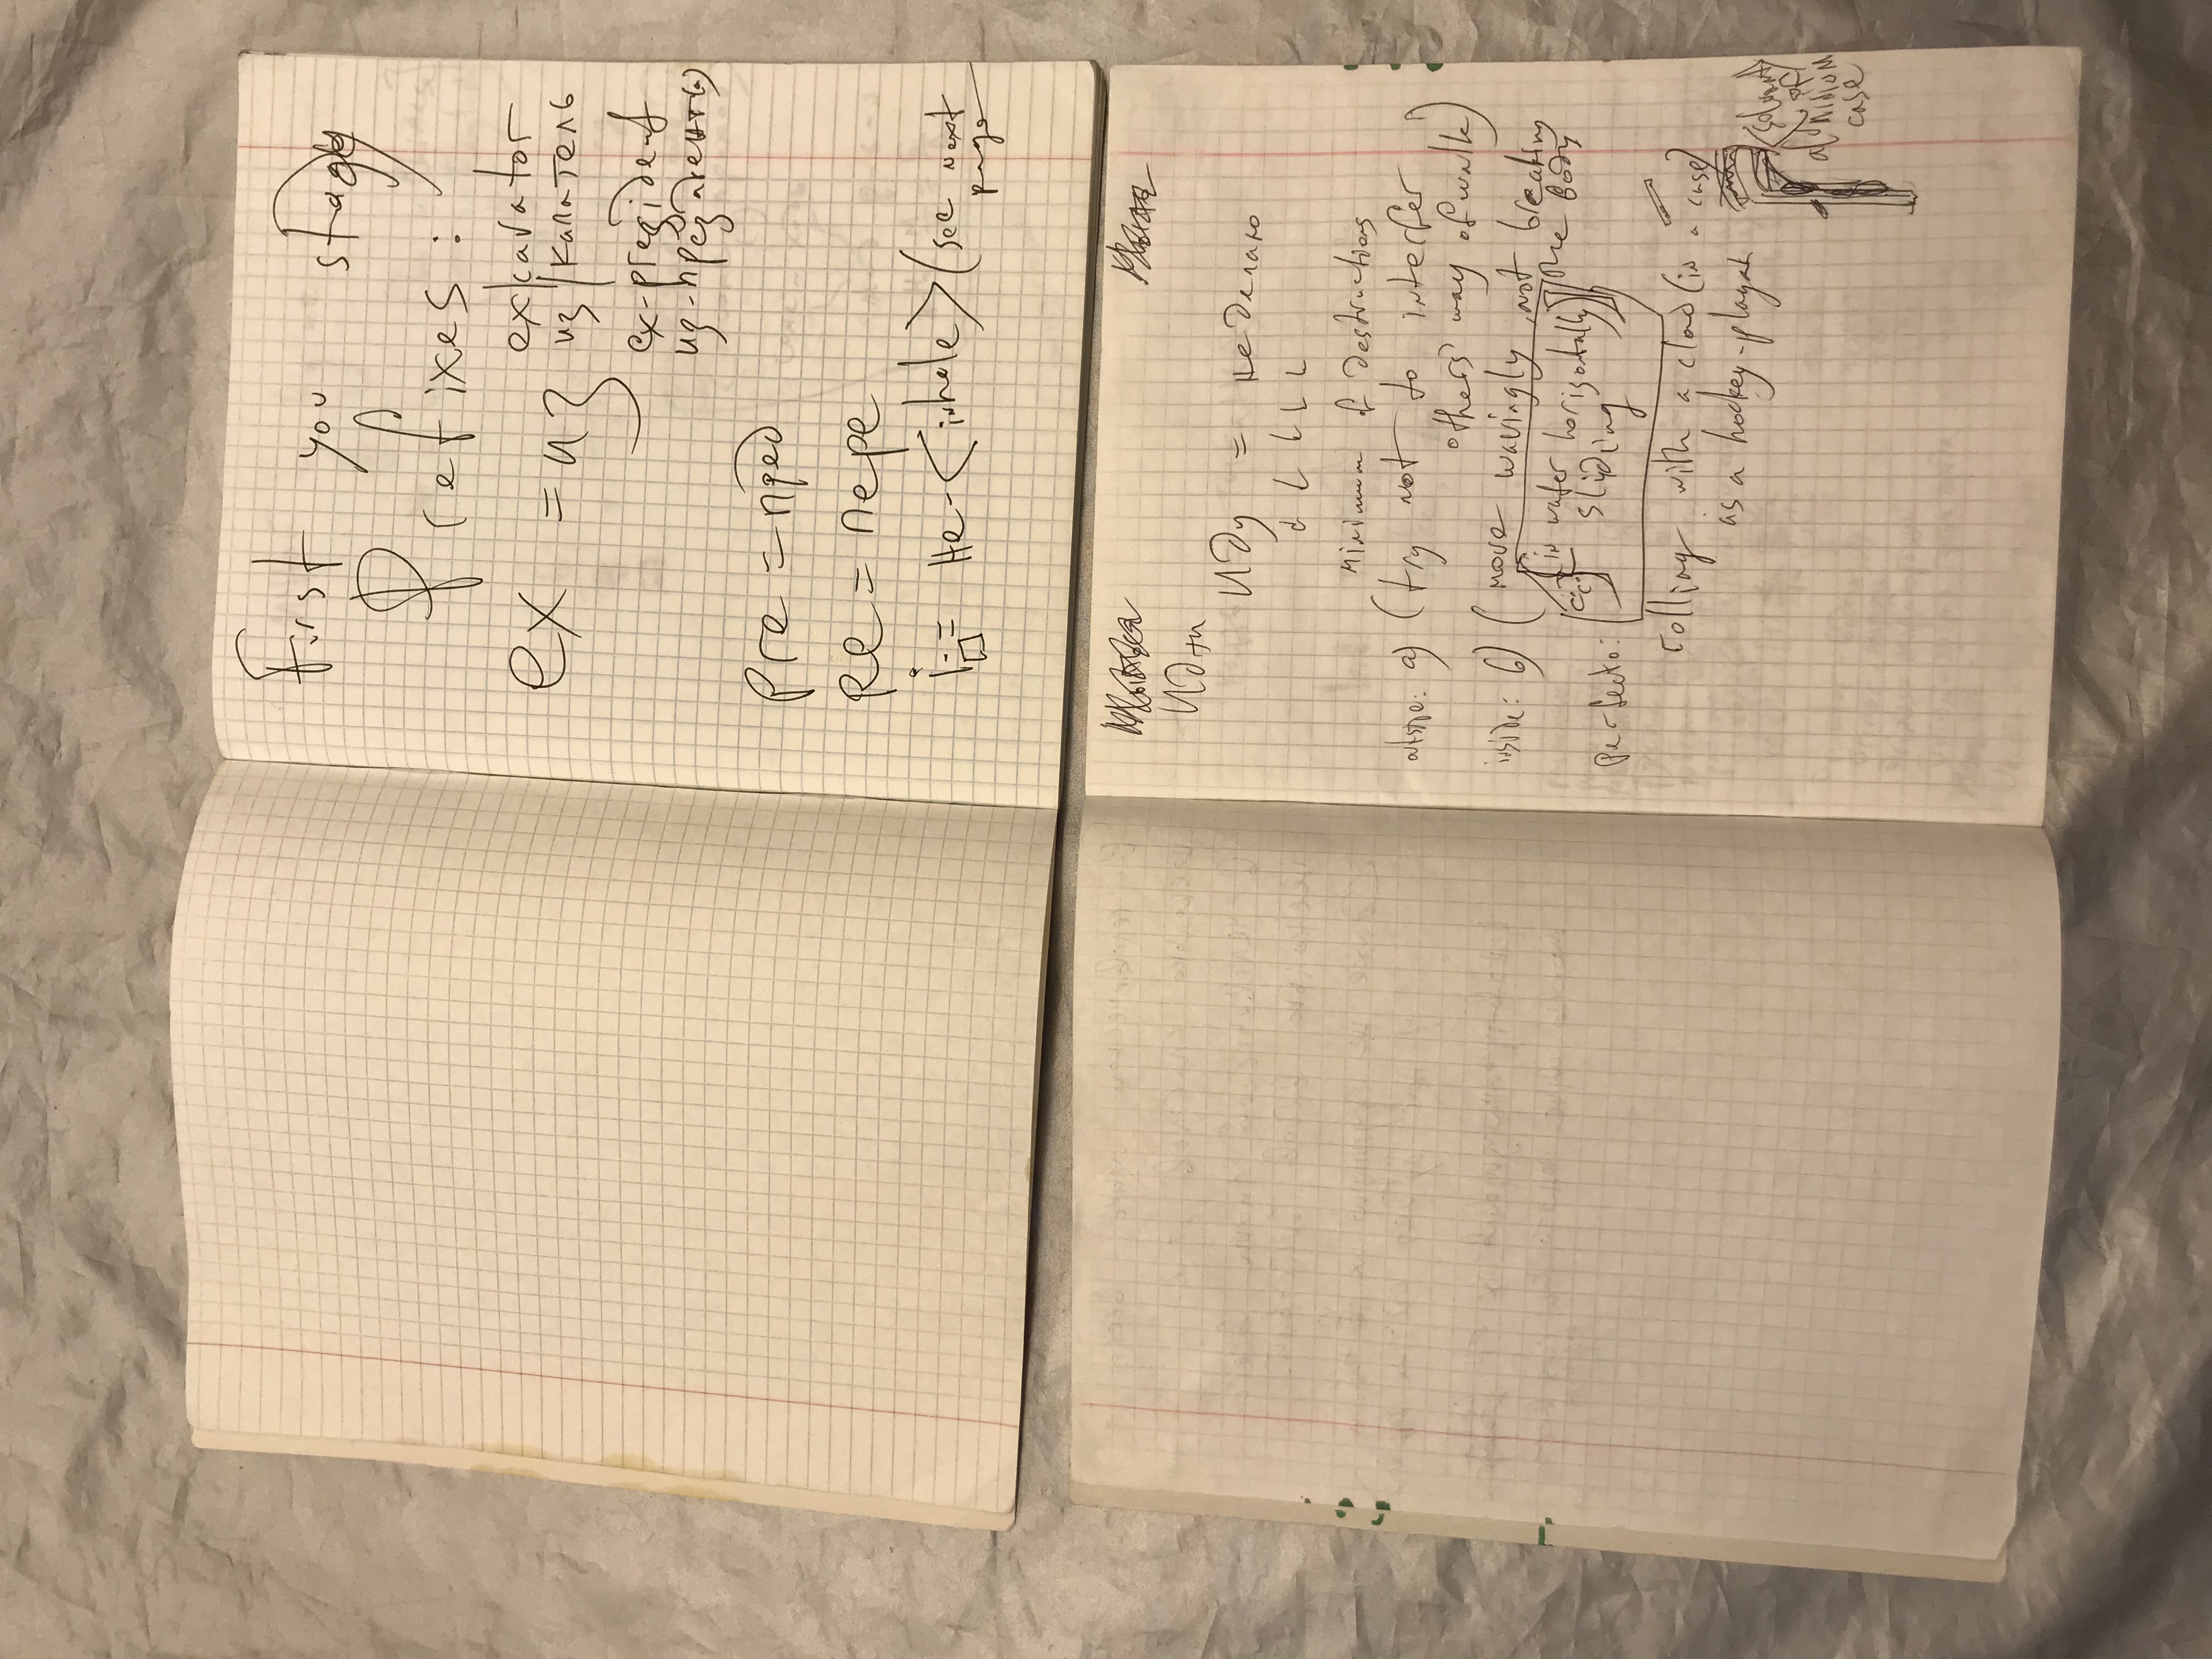 First you study
Prefixes:
ex = из
ex/cavator
из/капатель
ex-prezident
из-президент(а)
pre = пред
re = пере
i = не-<inhale> (see next page
Идти
Иду = не делаю
minimum of destructions
outside: a) (try not to interfer
others' way of walk)
inside: б) (move wavingly, not breaking
the body
in water horizontally
sliding
perfecto:
rolling with a cloud (in a case)
as a hockey-player
case